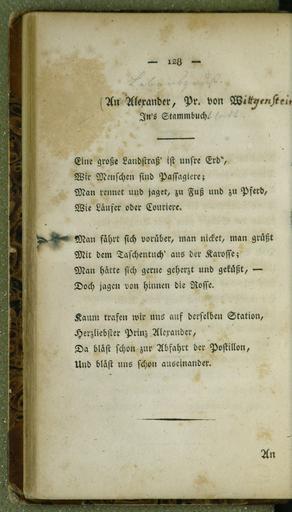 — 128 —
(An Alexander, Pr. von Wittgenstein
In's Stammbuch.
Eine große Landstraß' ist unsre Erd',
Wir Menschen sind Passagiere;
Man rennet und jaget, zu Fuß und zu Pferd,
Wie Läufer oder Couriere.
Man fährt sich vorüber, man nicket, man grüßt
Mit dem Taschentuch' aus der Karosse;
Man hätte sich gerne geherzt und geküßt, —
Doch jagen von hinnen die Rosse.
Kaum trafen wir uns auf derselben Station,
Herzliebster Prinz Alexander,
Da bläst schon zur Abfahrt der Postillon,
Und bläst uns schon auseinander.
An